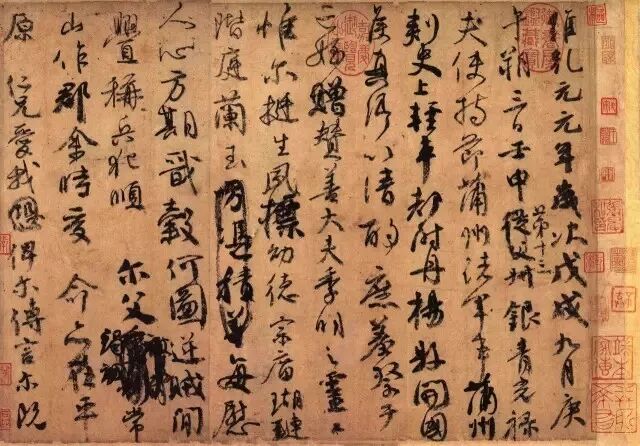 維乾元元年歲次戊戌九月庚
午朔三日壬申第十三從父叔銀青光祿
夫使持節蒲州諸軍事蒲州
刺史上輕車都尉丹楊縣開國
侯真卿以清酌庶羞祭于
亡姪贈贊善大夫季明之靈曰
惟爾挺生夙標幼德宗廟瑚璉
階庭蘭玉方憑積善每慰
人心方期戩穀何圖逆賊閒
釁稱兵犯順爾父竭誠常
山作郡余時受命亦在平
原仁兄愛我俾爾傳言爾既